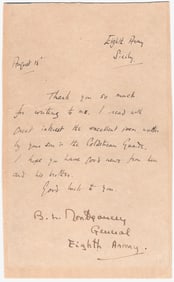 Eighth Army
Sicily
August 15
Thank you so much
for writing to me. I read with
great interest the excellent poem written
by your son in the Coldstream Guards.
I hope you have good news from him
and his brother.
Good luck to you.
B. L. Montgomery
General
Eighth Army.